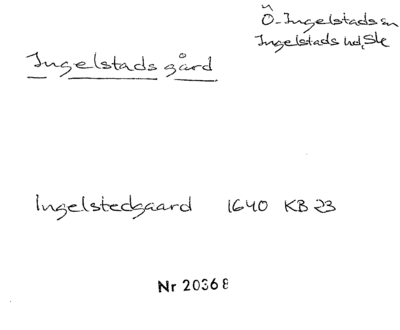 Ö-Ingelstads sn
Ingelstads hd, Sk
Ingelstads gård
Ingelstedgaard 1640 KB 23
Nr 20368